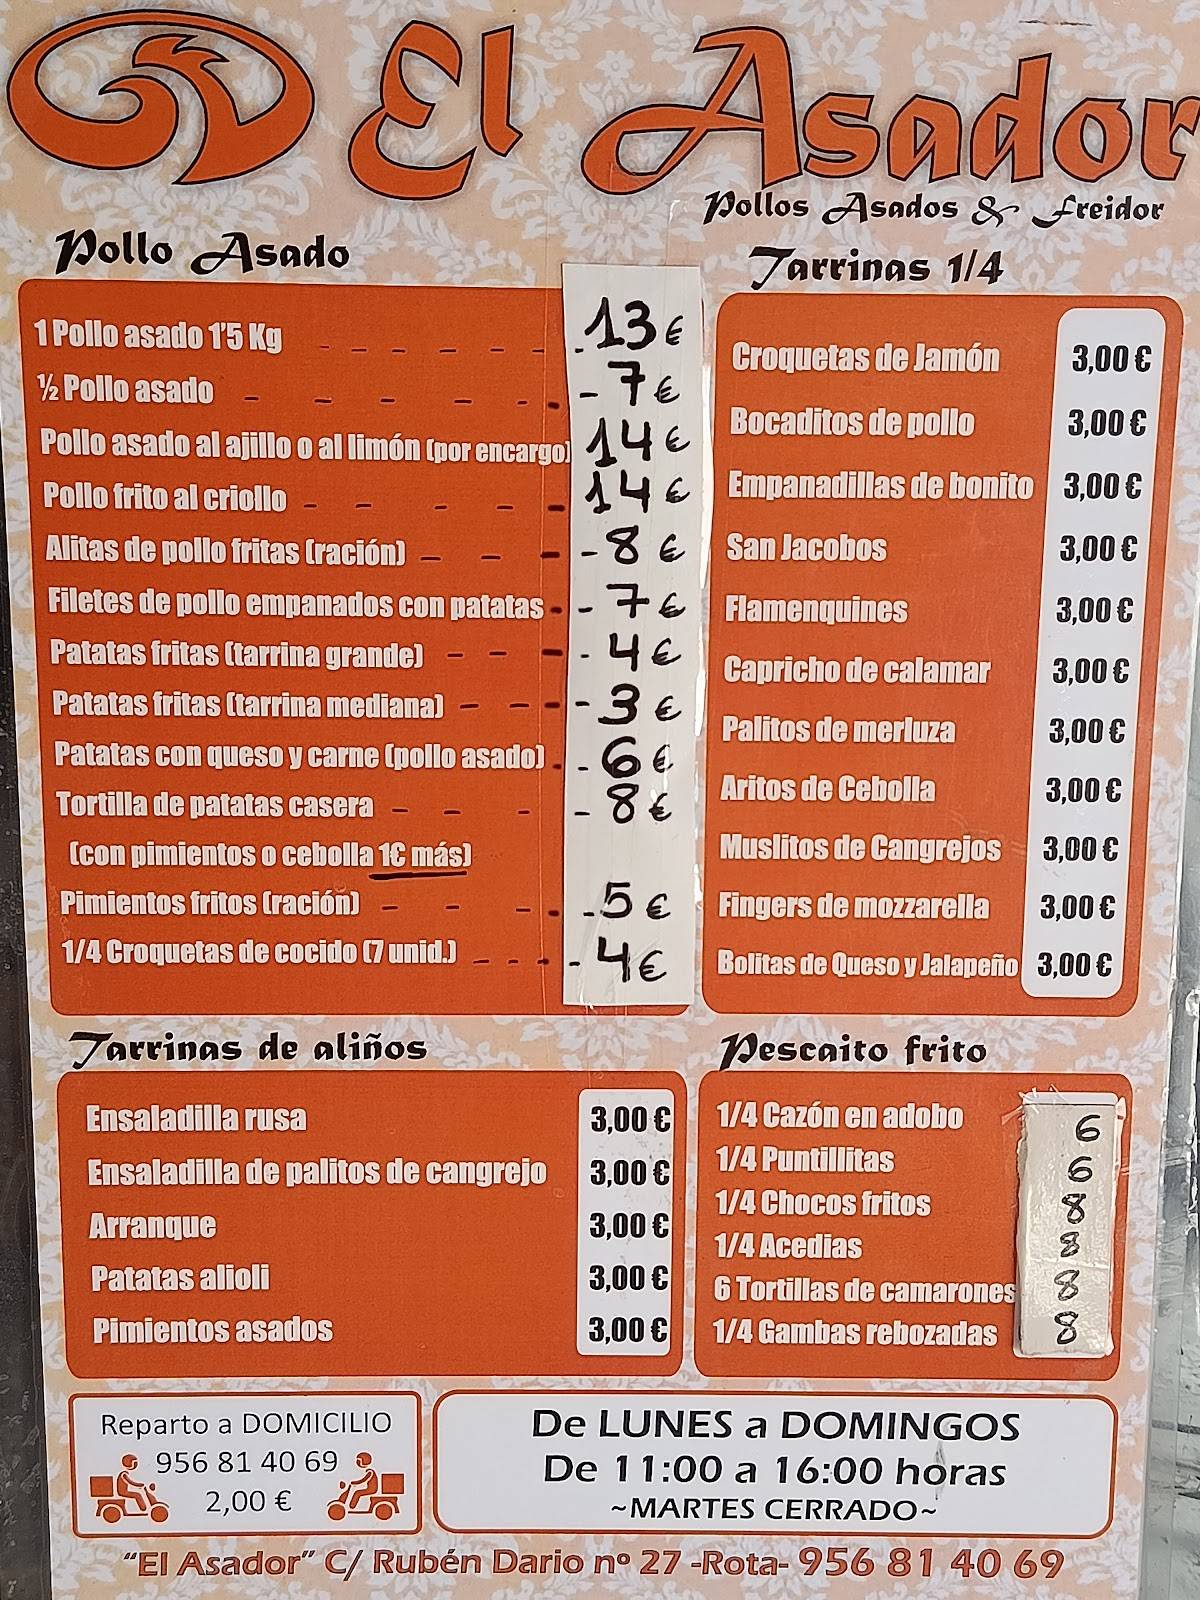 El Asador
Pollos Asados & Freidor
Pollo Asado
1 Pollo asado 1'5 Kg 13 €
½ Pollo asado 7 €
Pollo asado al ajillo o al limón (por encargo) 14 €
Pollo frito al criollo 14 €
Alitas de pollo fritas (ración) 8 €
Filetes de pollo empanados con patatas 7 €
Patatas fritas (tarrina grande) 4 €
Patatas fritas (tarrina mediana) 3 €
Patatas con queso y carne (pollo asado) 6 €
Tortilla de patatas casera 8 €
(con pimientos o cebolla 1€ más)
Pimientos fritos (ración) 5 €
1/4 Croquetas de cocido (7 unid.) 4 €
Tarrinas 1/4
Croquetas de Jamón 3,00 €
Bocaditos de pollo 3,00 €
Empanadillas de bonito 3,00 €
San Jacobos 3,00 €
Flamenquines 3,00 €
Capricho de calamar 3,00 €
Palitos de merluza 3,00 €
Aritos de Cebolla 3,00 €
Muslitos de Cangrejos 3,00 €
Fingers de mozzarella 3,00 €
Bolitas de Queso y Jalapeño 3,00 €
Tarrinas de aliños
Ensaladilla rusa 3,00 €
Ensaladilla de palitos de cangrejo 3,00 €
Arranque 3,00 €
Patatas alioli 3,00 €
Pimientos asados 3,00 €
Pescaito frito
1/4 Cazón en adobo 6
1/4 Puntillitas 6
1/4 Chocos fritos 8
1/4 Acedias 8
6 Tortillas de camarones 8
1/4 Gambas rebozadas 8
Reparto a DOMICILIO
956 81 40 69
2,00 €
De LUNES a DOMINGOS
De 11:00 a 16:00 horas
~MARTES CERRADO~
"El Asador" C/ Rubén Dario nº 27 -Rota- 956 81 40 69